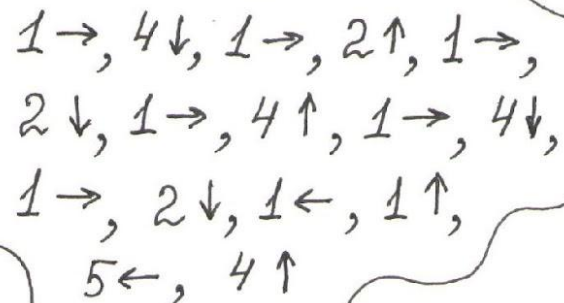 1→, 4↓, 1→, 2↑, 1→,
2↓, 1→, 4↑, 1→, 4↓,
1→, 2↓, 1←, 1↑,
5←, 4↑